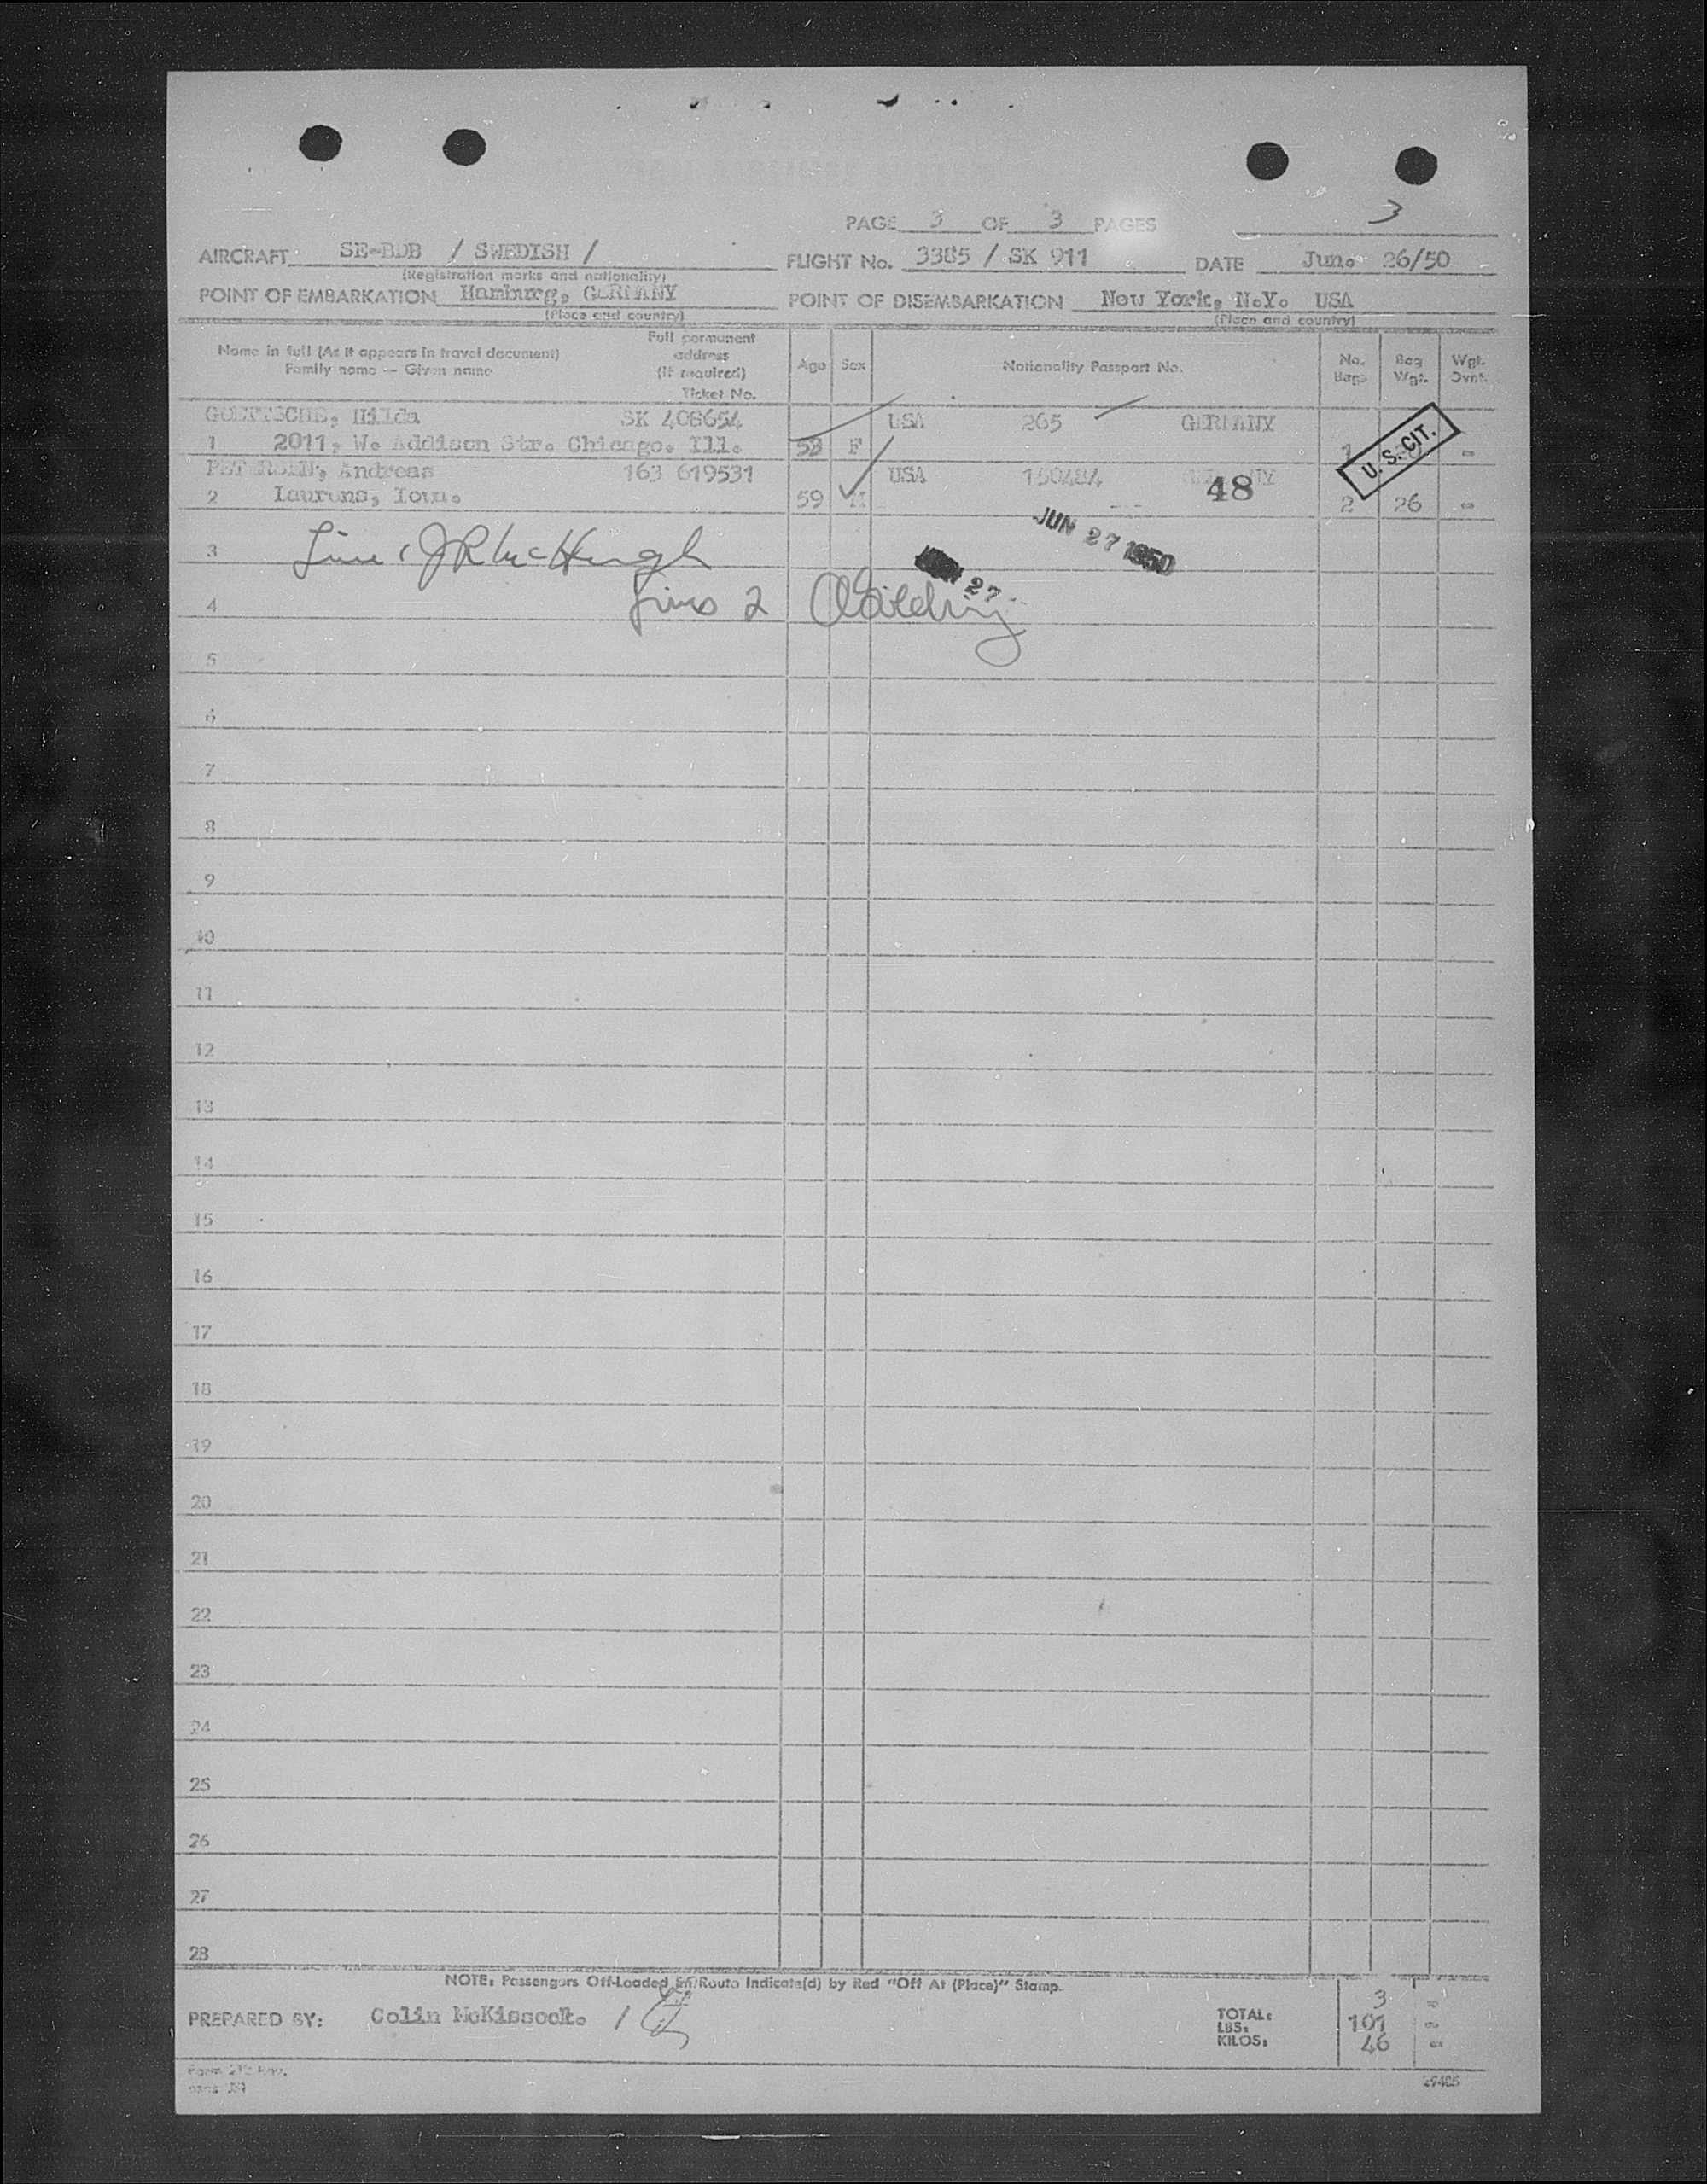 PAGE 3 OF 3 PAGES
3
AIRCRAFT SE-BDB / SWEDISH / FLIGHT No. 3385 / SK 911 DATE Jun. 26/50
(Registration marks and nationality)
POINT OF EMBARKATION Hamburg, GERMANY POINT OF DISEMBARKATION New York, N.Y. USA
(Place and country) (Place and country)
Name in full (As it appears in travel document) Family name — Given name Full permanent address (If required) Ticket No. Age Sex Nationality Passport No. No. Bags Bag Wgt. Wgt. Ovnt.
GOETTSCHE, Hilda SK 408654 USA 265 GERMANY
1 2011, W. Addison Str. Chicago, Ill. 53 F 1 -
U. S. CIT.
PETERSEN, Andreas 163 619531 USA 150484
48
2 Laurens, Iowa. 59 M 2 26 -
JUN 27 1950
3 Line 1 JR McHugh
JUN 27
4 Lines 2
5
6
7
8
9
10
11
12
13
14
15
16
17
18
19
20
21
22
23
24
25
26
27
28
NOTE: Passengers Off-Loaded En Route Indicate(d) by Red "Off At (Place)" Stamp.
PREPARED BY: Colin McKissock. /
TOTAL: 3 -
LBS: 101 -
KILOS: 46 -
Form 212 Rev.
29405